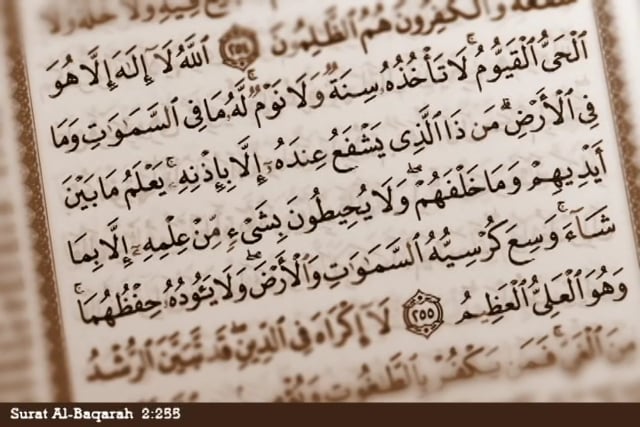 شَفَٰعَةٌ وَٱلْكَٰفِرُونَ هُمُ ٱلظَّٰلِمُونَ ٢٥٤ ٱللَّهُ لَآ إِلَٰهَ إِلَّا هُوَ
ٱلْحَىُّ ٱلْقَيُّومُ ۚ لَا تَأْخُذُهُۥ سِنَةٌ وَلَا نَوْمٌ ۚ لَّهُۥ مَا فِى ٱلسَّمَٰوَٰتِ وَمَا
فِى ٱلْأَرْضِ ۗ مَن ذَا ٱلَّذِى يَشْفَعُ عِندَهُۥٓ إِلَّا بِإِذْنِهِۦ ۚ يَعْلَمُ مَا بَيْنَ
أَيْدِيهِمْ وَمَا خَلْفَهُمْ ۖ وَلَا يُحِيطُونَ بِشَىْءٍ مِّنْ عِلْمِهِۦٓ إِلَّا بِمَا
شَآءَ ۚ وَسِعَ كُرْسِيُّهُ ٱلسَّمَٰوَٰتِ وَٱلْأَرْضَ ۖ وَلَا يَـُٔودُهُۥ حِفْظُهُمَا ۚ
وَهُوَ ٱلْعَلِىُّ ٱلْعَظِيمُ ٢٥٥ لَآ إِكْرَاهَ فِى ٱلدِّينِ ۖ قَد تَّبَيَّنَ ٱلرُّشْدُ
مِنَ ٱلْغَىِّ ۚ فَمَن يَكْفُرْ بِٱلطَّٰغُوتِ
Surat Al-Baqarah 2:255